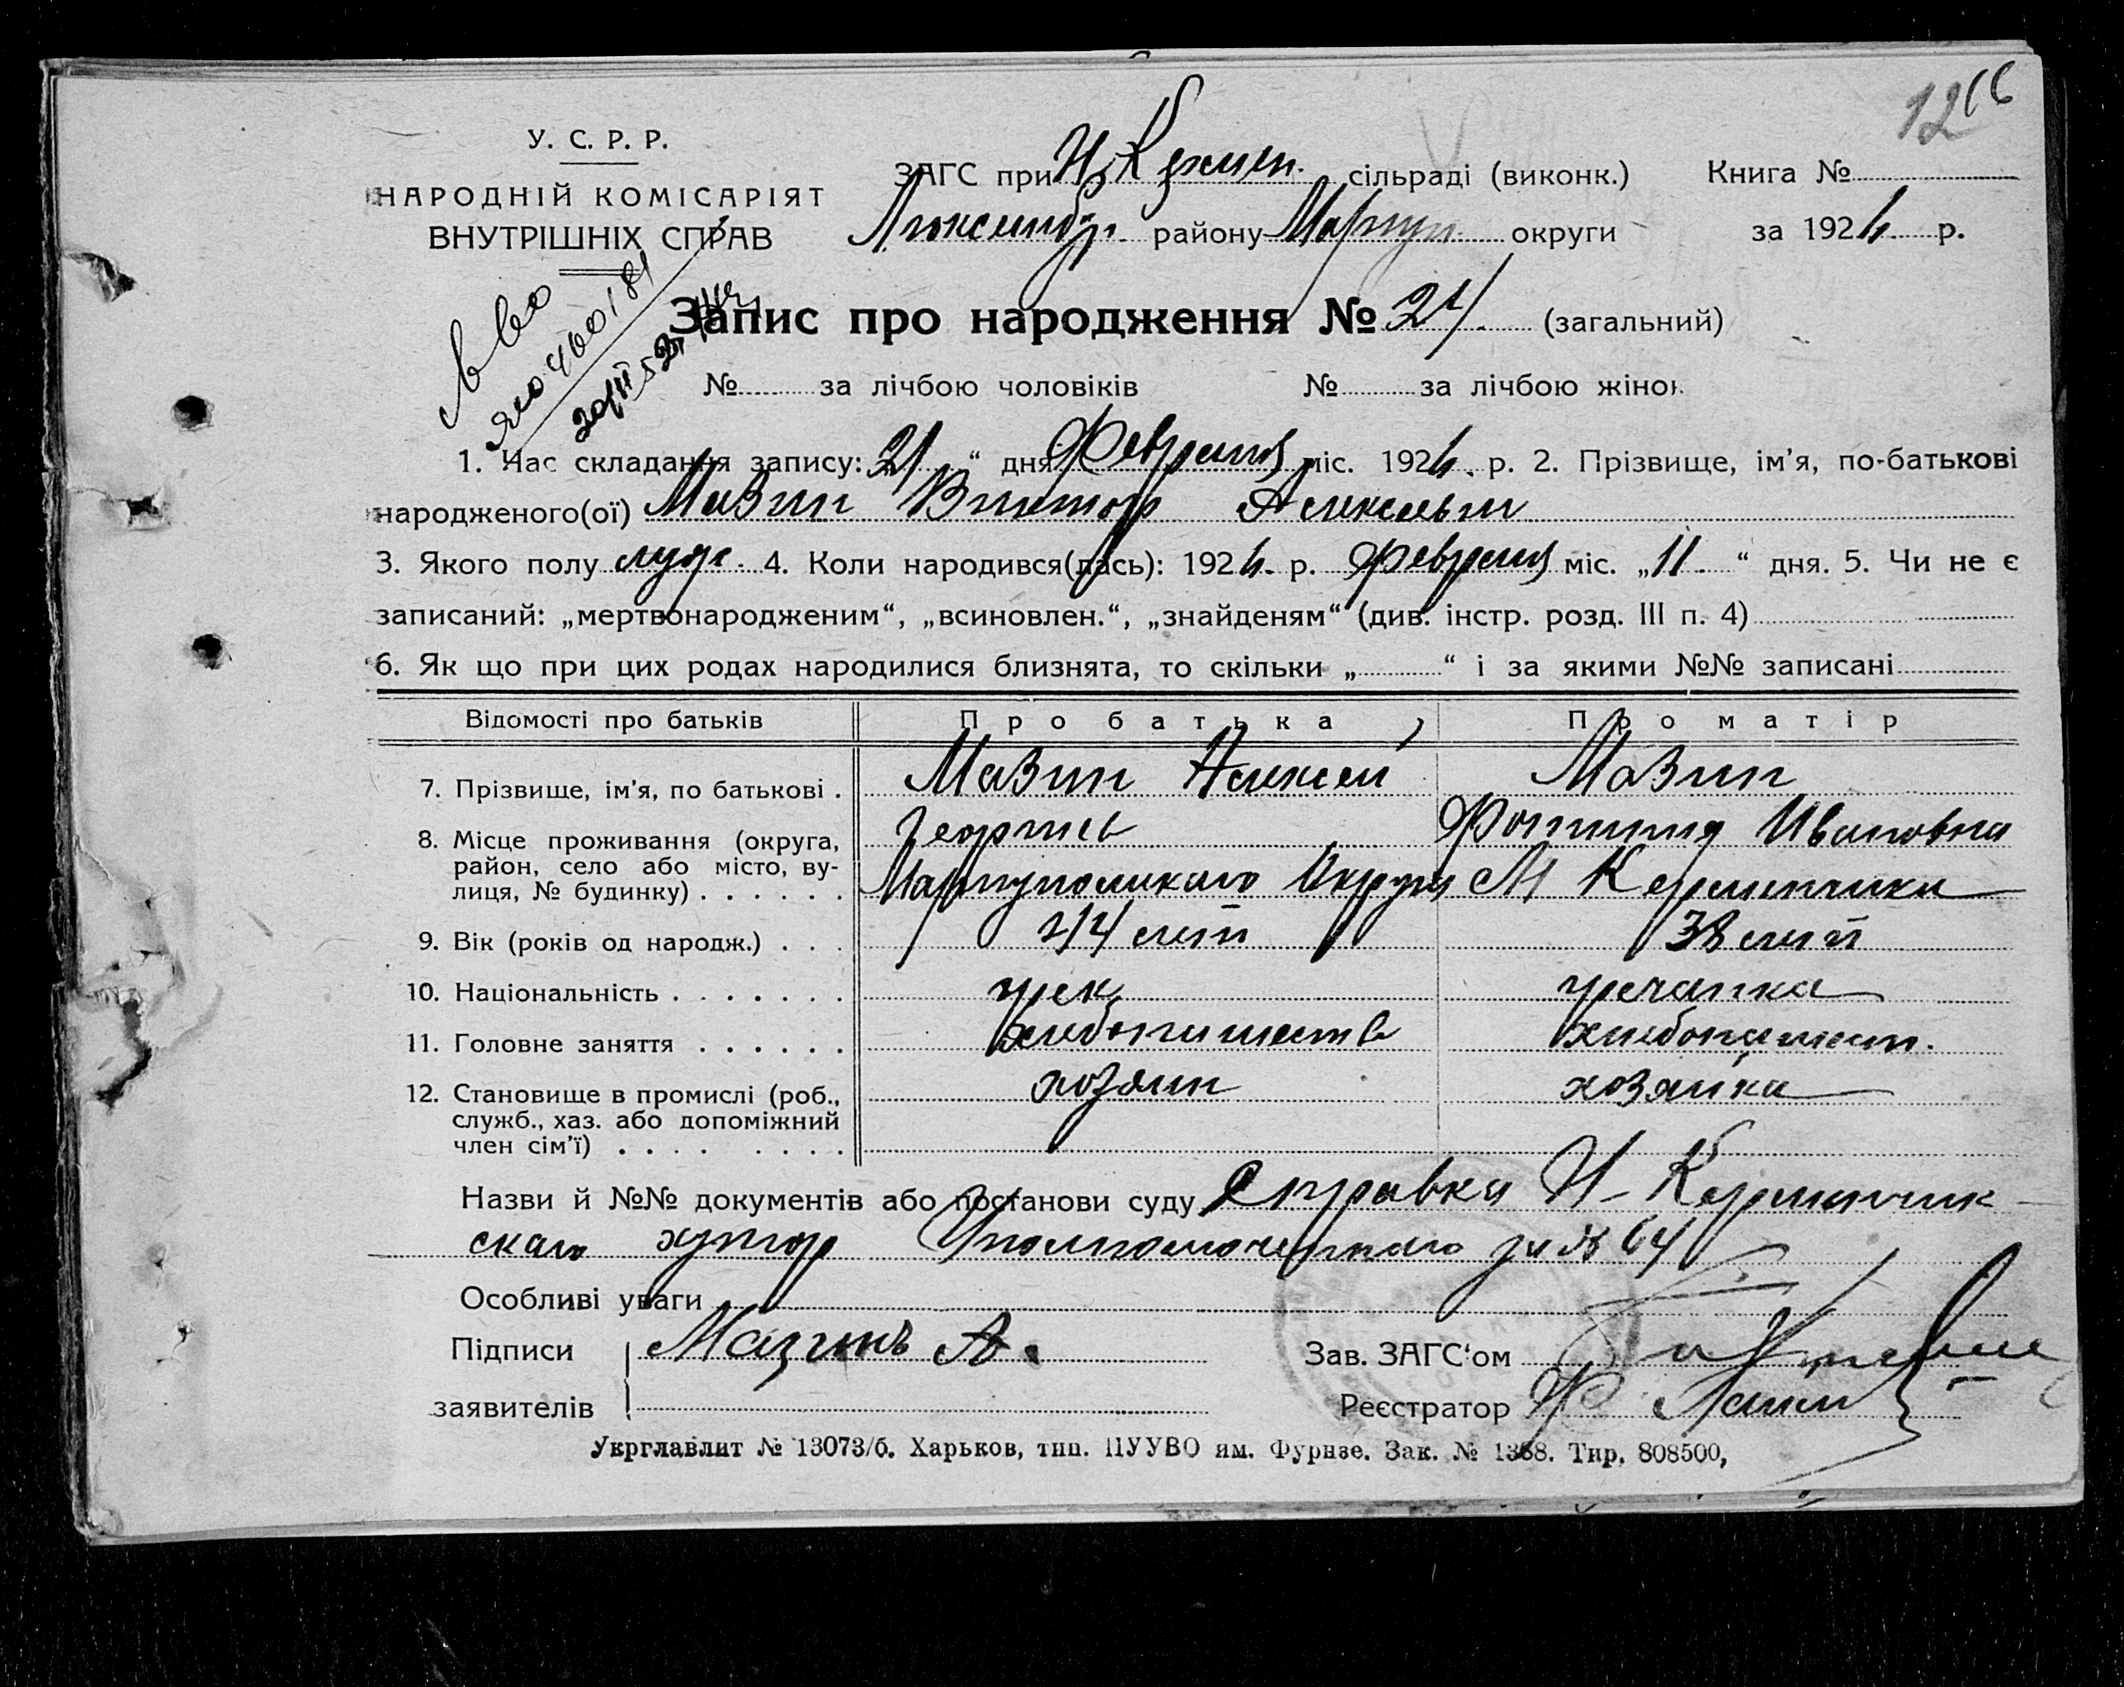 12
У. С. Р. Р.
НАРОДНІЙ КОМІСАРІЯТ
ВНУТРІШНІХ СПРАВ
ЗАГС при Н Кермен. сільраді (виконк.) Книга №
Люксембур. району Мариуп. округи за 1926 р.
Запис про народження № 24. (загальний)
№ за лічбою чоловіків № за лічбою жінок
1. Час складання запису: 21 “ дня Февраля міс. 1926. р. 2. Прізвище, ім’я, по-батькові
народженого(ої) Мазин Виктор Алексеев
3. Якого полу муж. 4. Коли народився(лась): 1926. р. Февраля міс. „11.“ дня. 5. Чи не є
записаний: „мертвонародженим“, „всиновлен.“, „знайденям“ (див. інстр. розд. III п. 4)
6. Як що при цих родах народилися близнята, то скільки „ “ і за якими №№ записані
Відомості про батьків Про батька Про матір
7. Прізвище, ім’я, по батькові . Мазин Алексей Мазин
8. Місце проживання (округа, Георгиев Фотиния Ивановна
район, село або місто, ву-
лиця, № будинку) . . . . . . Мариупольского Округа Керменчика
9. Вік (років од народж.) . . . 44 лет 38 лет
10. Національність . . . . . . . грек гречанка
11. Головне заняття . . . . . . хлебопашеств хлебопашест.
12. Становище в промислі (роб., хозяин хозяйка
служб., хаз. або допоміжний
член сім’ї) . . . . . . . .
Назви й №№ документів або постанови суду Справка Н-Керменчик
скаго хутор Уполномоченнаго за № 64
Особливі уваги
Підписи Мазинъ А.
Зав. ЗАГС‘ом
заявителів
Реєстратор
Укрглавлит № 13073/б. Харьков, тип. ПУУВО им. Фурнзе. Зак. № 1388. Тир. 808500,